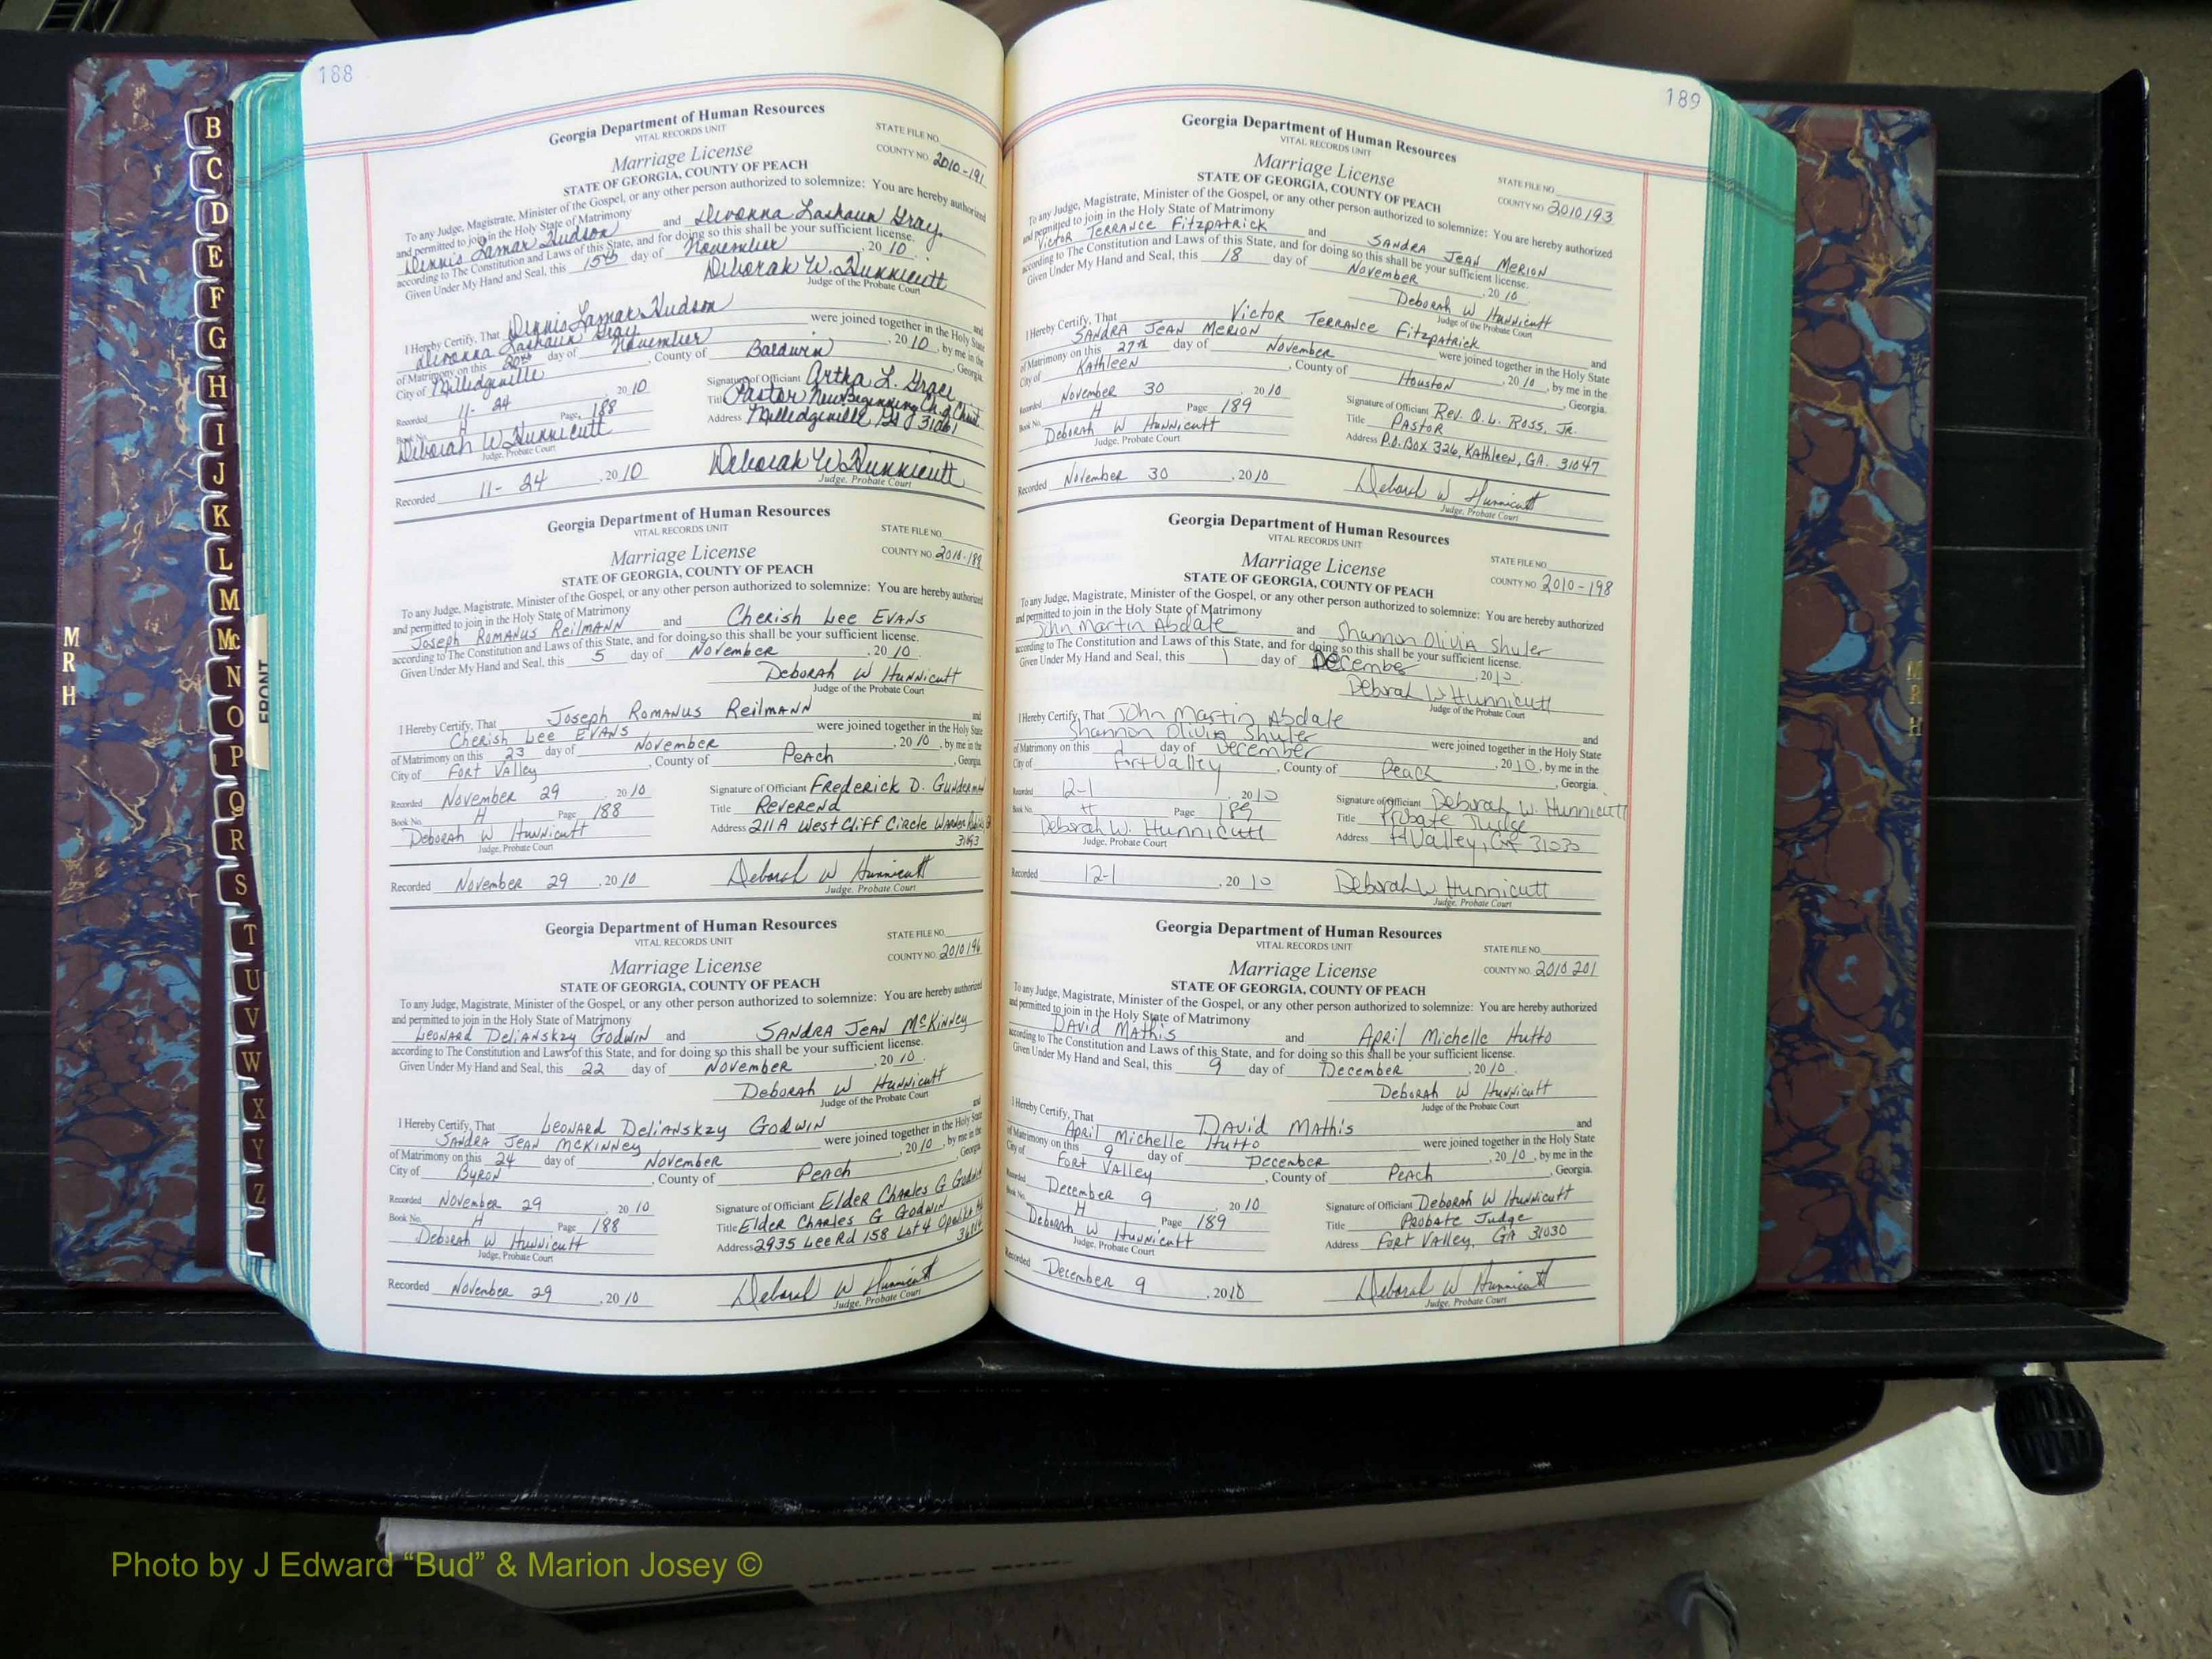 188
Georgia Department of Human Resources
VITAL RECORDS UNIT
STATE FILE NO.
Marriage License
COUNTY NO. 2010-191
STATE OF GEORGIA, COUNTY OF PEACH
To any Judge, Magistrate, Minister of the Gospel, or any other person authorized to solemnize: You are hereby authorized
and permitted to join in the Holy State of Matrimony
Dennis Lamar Hudson and Devonna Lashaun Gray
according to The Constitution and Laws of this State, and for doing so this shall be your sufficient license.
Given Under My Hand and Seal, this 15th day of November, 2010.
Deborah W. Hunnicutt
Judge of the Probate Court
I Hereby Certify, That Dennis Lamar Hudson and
Devonna Lashaun Gray were joined together in the Holy State
of Matrimony on this 20th day of November, 2010, by me in the
City of Milledgeville, County of Baldwin, Georgia.
Recorded 11-24 2010 Signature of Officiant Artha L. Grace
Book No. H Page 188 Title Pastor New Beginning Ch of Christ
Deborah W Hunnicutt Address Milledgeville Ga 31061
Judge, Probate Court
Recorded 11-24, 2010 Deborah W Hunnicutt
Judge, Probate Court
Georgia Department of Human Resources
VITAL RECORDS UNIT
STATE FILE NO.
Marriage License
COUNTY NO. 2010-188
STATE OF GEORGIA, COUNTY OF PEACH
To any Judge, Magistrate, Minister of the Gospel, or any other person authorized to solemnize: You are hereby authorized
and permitted to join in the Holy State of Matrimony
Joseph Romanus Reilmann and Cherish Lee Evans
according to The Constitution and Laws of this State, and for doing so this shall be your sufficient license.
Given Under My Hand and Seal, this 5 day of November, 2010.
Deborah W Hunnicutt
Judge of the Probate Court
I Hereby Certify, That Joseph Romanus Reilmann and
Cherish Lee Evans were joined together in the Holy State
of Matrimony on this 23 day of November, 2010, by me in the
City of Fort Valley, County of Peach, Georgia.
Recorded November 29 2010 Signature of Officiant Frederick D. Gunderman
Book No. H Page 188 Title Reverend
Deborah W Hunnicutt Address 211 A West Cliff Circle Warner Robins
Judge, Probate Court 31093
Recorded November 29, 2010 Deborah W Hunnicutt
Judge, Probate Court
Georgia Department of Human Resources
VITAL RECORDS UNIT
STATE FILE NO.
Marriage License
COUNTY NO. 2010 196
STATE OF GEORGIA, COUNTY OF PEACH
To any Judge, Magistrate, Minister of the Gospel, or any other person authorized to solemnize: You are hereby authorized
and permitted to join in the Holy State of Matrimony
Leonard Delianskzy Godwin and Sandra Jean McKinney
according to The Constitution and Laws of this State, and for doing so this shall be your sufficient license.
Given Under My Hand and Seal, this 22 day of November, 2010.
Deborah W Hunnicutt
Judge of the Probate Court
I Hereby Certify, That Leonard Delianskzy Godwin and
Sandra Jean McKinney were joined together in the Holy State
of Matrimony on this 24 day of November, 2010, by me in the
City of Byron, County of Peach, Georgia.
Recorded November 29 2010 Signature of Officiant Elder Charles G Godwin
Book No. H Page 188 Title Elder Charles G Godwin
Deborah W Hunnicutt Address 2935 Lee Rd 158 Lot 4
Judge, Probate Court
Recorded November 29, 2010 Deborah W Hunnicutt
Judge, Probate Court
189
Georgia Department of Human Resources
VITAL RECORDS UNIT
STATE FILE NO.
Marriage License
COUNTY NO. 2010193
STATE OF GEORGIA, COUNTY OF PEACH
To any Judge, Magistrate, Minister of the Gospel, or any other person authorized to solemnize: You are hereby authorized
and permitted to join in the Holy State of Matrimony
Victor Terrance Fitzpatrick and Sandra Jean Merion
according to The Constitution and Laws of this State, and for doing so this shall be your sufficient license.
Given Under My Hand and Seal, this 18 day of November, 2010.
Deborah W Hunnicutt
Judge of the Probate Court
I Hereby Certify, That Victor Terrance Fitzpatrick and
Sandra Jean Merion were joined together in the Holy State
of Matrimony on this 27th day of November, 2010, by me in the
City of Kathleen, County of Houston, Georgia.
Recorded November 30, 2010 Signature of Officiant Rev. Q.L. Ross, Jr.
Book No. H Page 189 Title Pastor
Deborah W Hunnicutt Address P.O. Box 326, Kathleen, GA. 31047
Judge, Probate Court
Recorded November 30, 2010 Deborah W Hunnicutt
Judge, Probate Court
Georgia Department of Human Resources
VITAL RECORDS UNIT
STATE FILE NO.
Marriage License
COUNTY NO. 2010-198
STATE OF GEORGIA, COUNTY OF PEACH
To any Judge, Magistrate, Minister of the Gospel, or any other person authorized to solemnize: You are hereby authorized
and permitted to join in the Holy State of Matrimony
John Martin Abdale and Shannon Olivia Shuler
according to The Constitution and Laws of this State, and for doing so this shall be your sufficient license.
Given Under My Hand and Seal, this 1 day of December, 2010.
Deborah W Hunnicutt
Judge of the Probate Court
I Hereby Certify, That John Martin Abdale and
Shannon Olivia Shuler were joined together in the Holy State
of Matrimony on this 1 day of December, 2010, by me in the
City of Fort Valley, County of Peach, Georgia.
Recorded 12-1, 2010 Signature of Officiant Deborah W. Hunnicutt
Book No. H Page 189 Title Probate Judge
Deborah W. Hunnicutt Address Ft Valley, GA 31030
Judge, Probate Court
Recorded 12-1, 2010 Deborah W Hunnicutt
Judge, Probate Court
Georgia Department of Human Resources
VITAL RECORDS UNIT
STATE FILE NO.
Marriage License
COUNTY NO. 2010 201
STATE OF GEORGIA, COUNTY OF PEACH
To any Judge, Magistrate, Minister of the Gospel, or any other person authorized to solemnize: You are hereby authorized
and permitted to join in the Holy State of Matrimony
David Mathis and April Michelle Hutto
according to The Constitution and Laws of this State, and for doing so this shall be your sufficient license.
Given Under My Hand and Seal, this 9 day of December, 2010.
Deborah W Hunnicutt
Judge of the Probate Court
I Hereby Certify, That David Mathis and
April Michelle Hutto were joined together in the Holy State
of Matrimony on this 9 day of December, 2010, by me in the
City of Fort Valley, County of Peach, Georgia.
Recorded December 9, 2010 Signature of Officiant Deborah W Hunnicutt
Book No. H Page 189 Title Probate Judge
Deborah W Hunnicutt Address Fort Valley, GA 31030
Judge, Probate Court
Recorded December 9, 2010 Deborah W Hunnicutt
Judge, Probate Court
B
C
D
E
F
G
H
I
J
K
L
M
Mc
N
O
P
Q
R
S
T
U
V
W
X
Y
Z
FRONT
M
R
H
M
R
H
Photo by J Edward “Bud” & Marion Josey ©